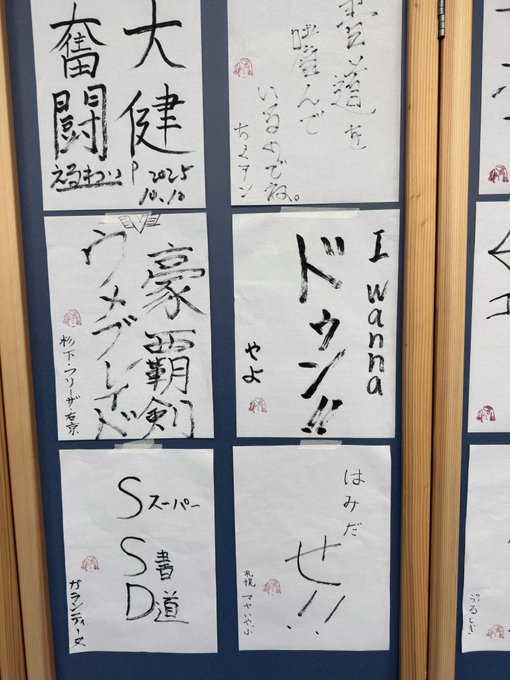 大健
奮闘
えるわいP
2025
10.10
書道を
嗜んで
いるのでね。
ちくアン
豪覇剣
ウメブレイド
杉下・フリーザ・右京
I wanna
ドゥン!!
やよ
Sスーパー
S書
D道
ガランティーヌ
はみだ
せ!!
札幌
ぷるとぎ